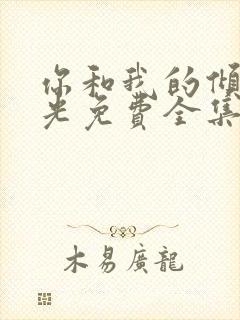 你和我的倾
光免费全集
木易廣龍